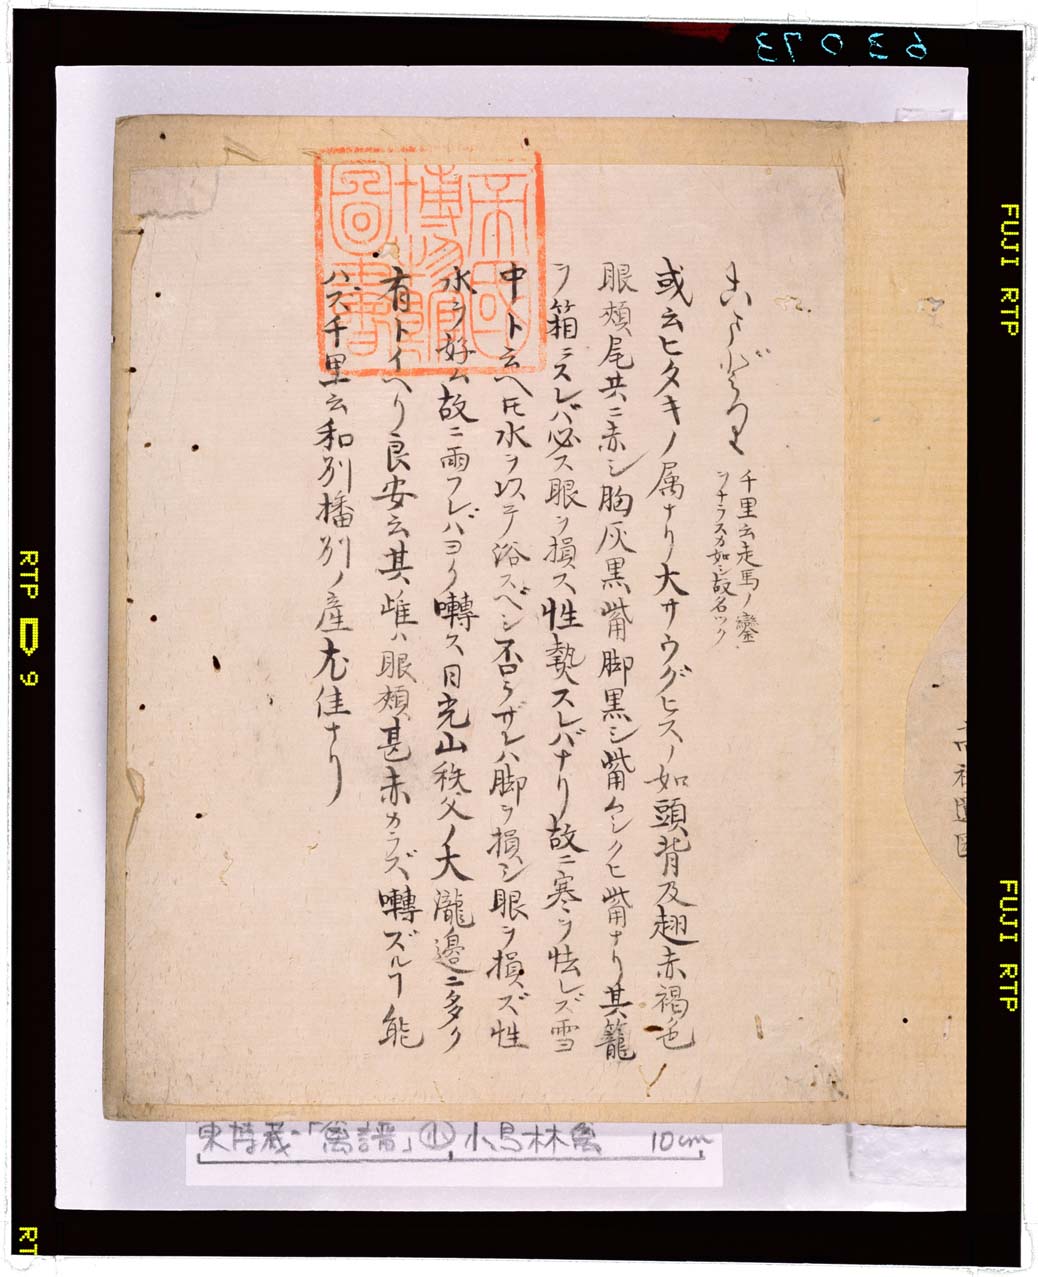 こまどり
千里云走馬ノ鑾
ヲナラスカ如シ故名ツク
或云ヒタキノ属ナリ大サウグヒスノ如頭背及翅赤褐色
眼頬尾共ニ赤シ胸灰黒觜脚黒シ觜ケシクヒ觜ナリ其籠
ヲ箱ニスレバ必ス眼ヲ損ス性熱スレバナリ故ニ寒ヲ怯レズ雪
中ト云ヘ𪜈水ヲ以テ浴スベシ否ラザレハ脚ヲ損シ眼ヲ損ズ性
水ヲ好ム故ニ雨フレバヨク囀ス日光山秩父ノ大瀧邉ニ多ク
有トイヘリ良安云其雌ハ眼頬甚赤カラズ囀ズルヿ能
ハズ千里云和州播州ノ産尤佳ナリ
帝國
博物館
圖書
東博蔵・「禽譜」小 小鳥林禽 10cm
63073
FUJI RTP
FUJI RTP
RTP 9
RT